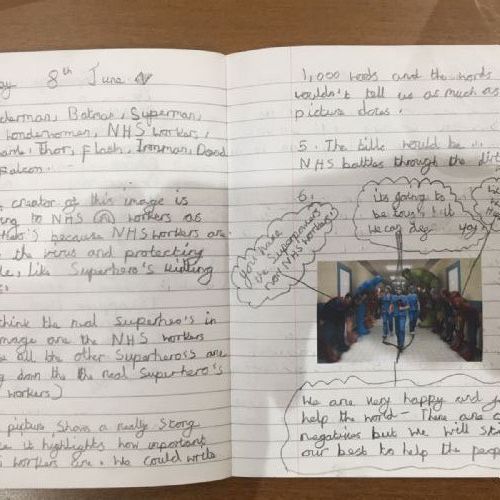 8th June
derman, Batman, Superman,
onderwoman, NHS workers,
Thor, Flash, Ironman, Dead
Falcon.
creator of this image is
ing to NHS workers as
because NHS workers are
the virus and protecting
le, like Superhero's
think the real superhero's in
mage are the NHS workers
all the other Superheros's are
g down the the real Superhero's
workers)
picture shows a really stong
it highlights how important
workers are. We could write
1,000 words and the words
wouldn't tell us as much as
picture does.
5. The title would be...
NHS battles through the
6.
you have
the superpowers
now NHS workers!
its going to
be tough but
we can do
you
We are very happy and
help the world - There are
negatives but we will
our best to help the people